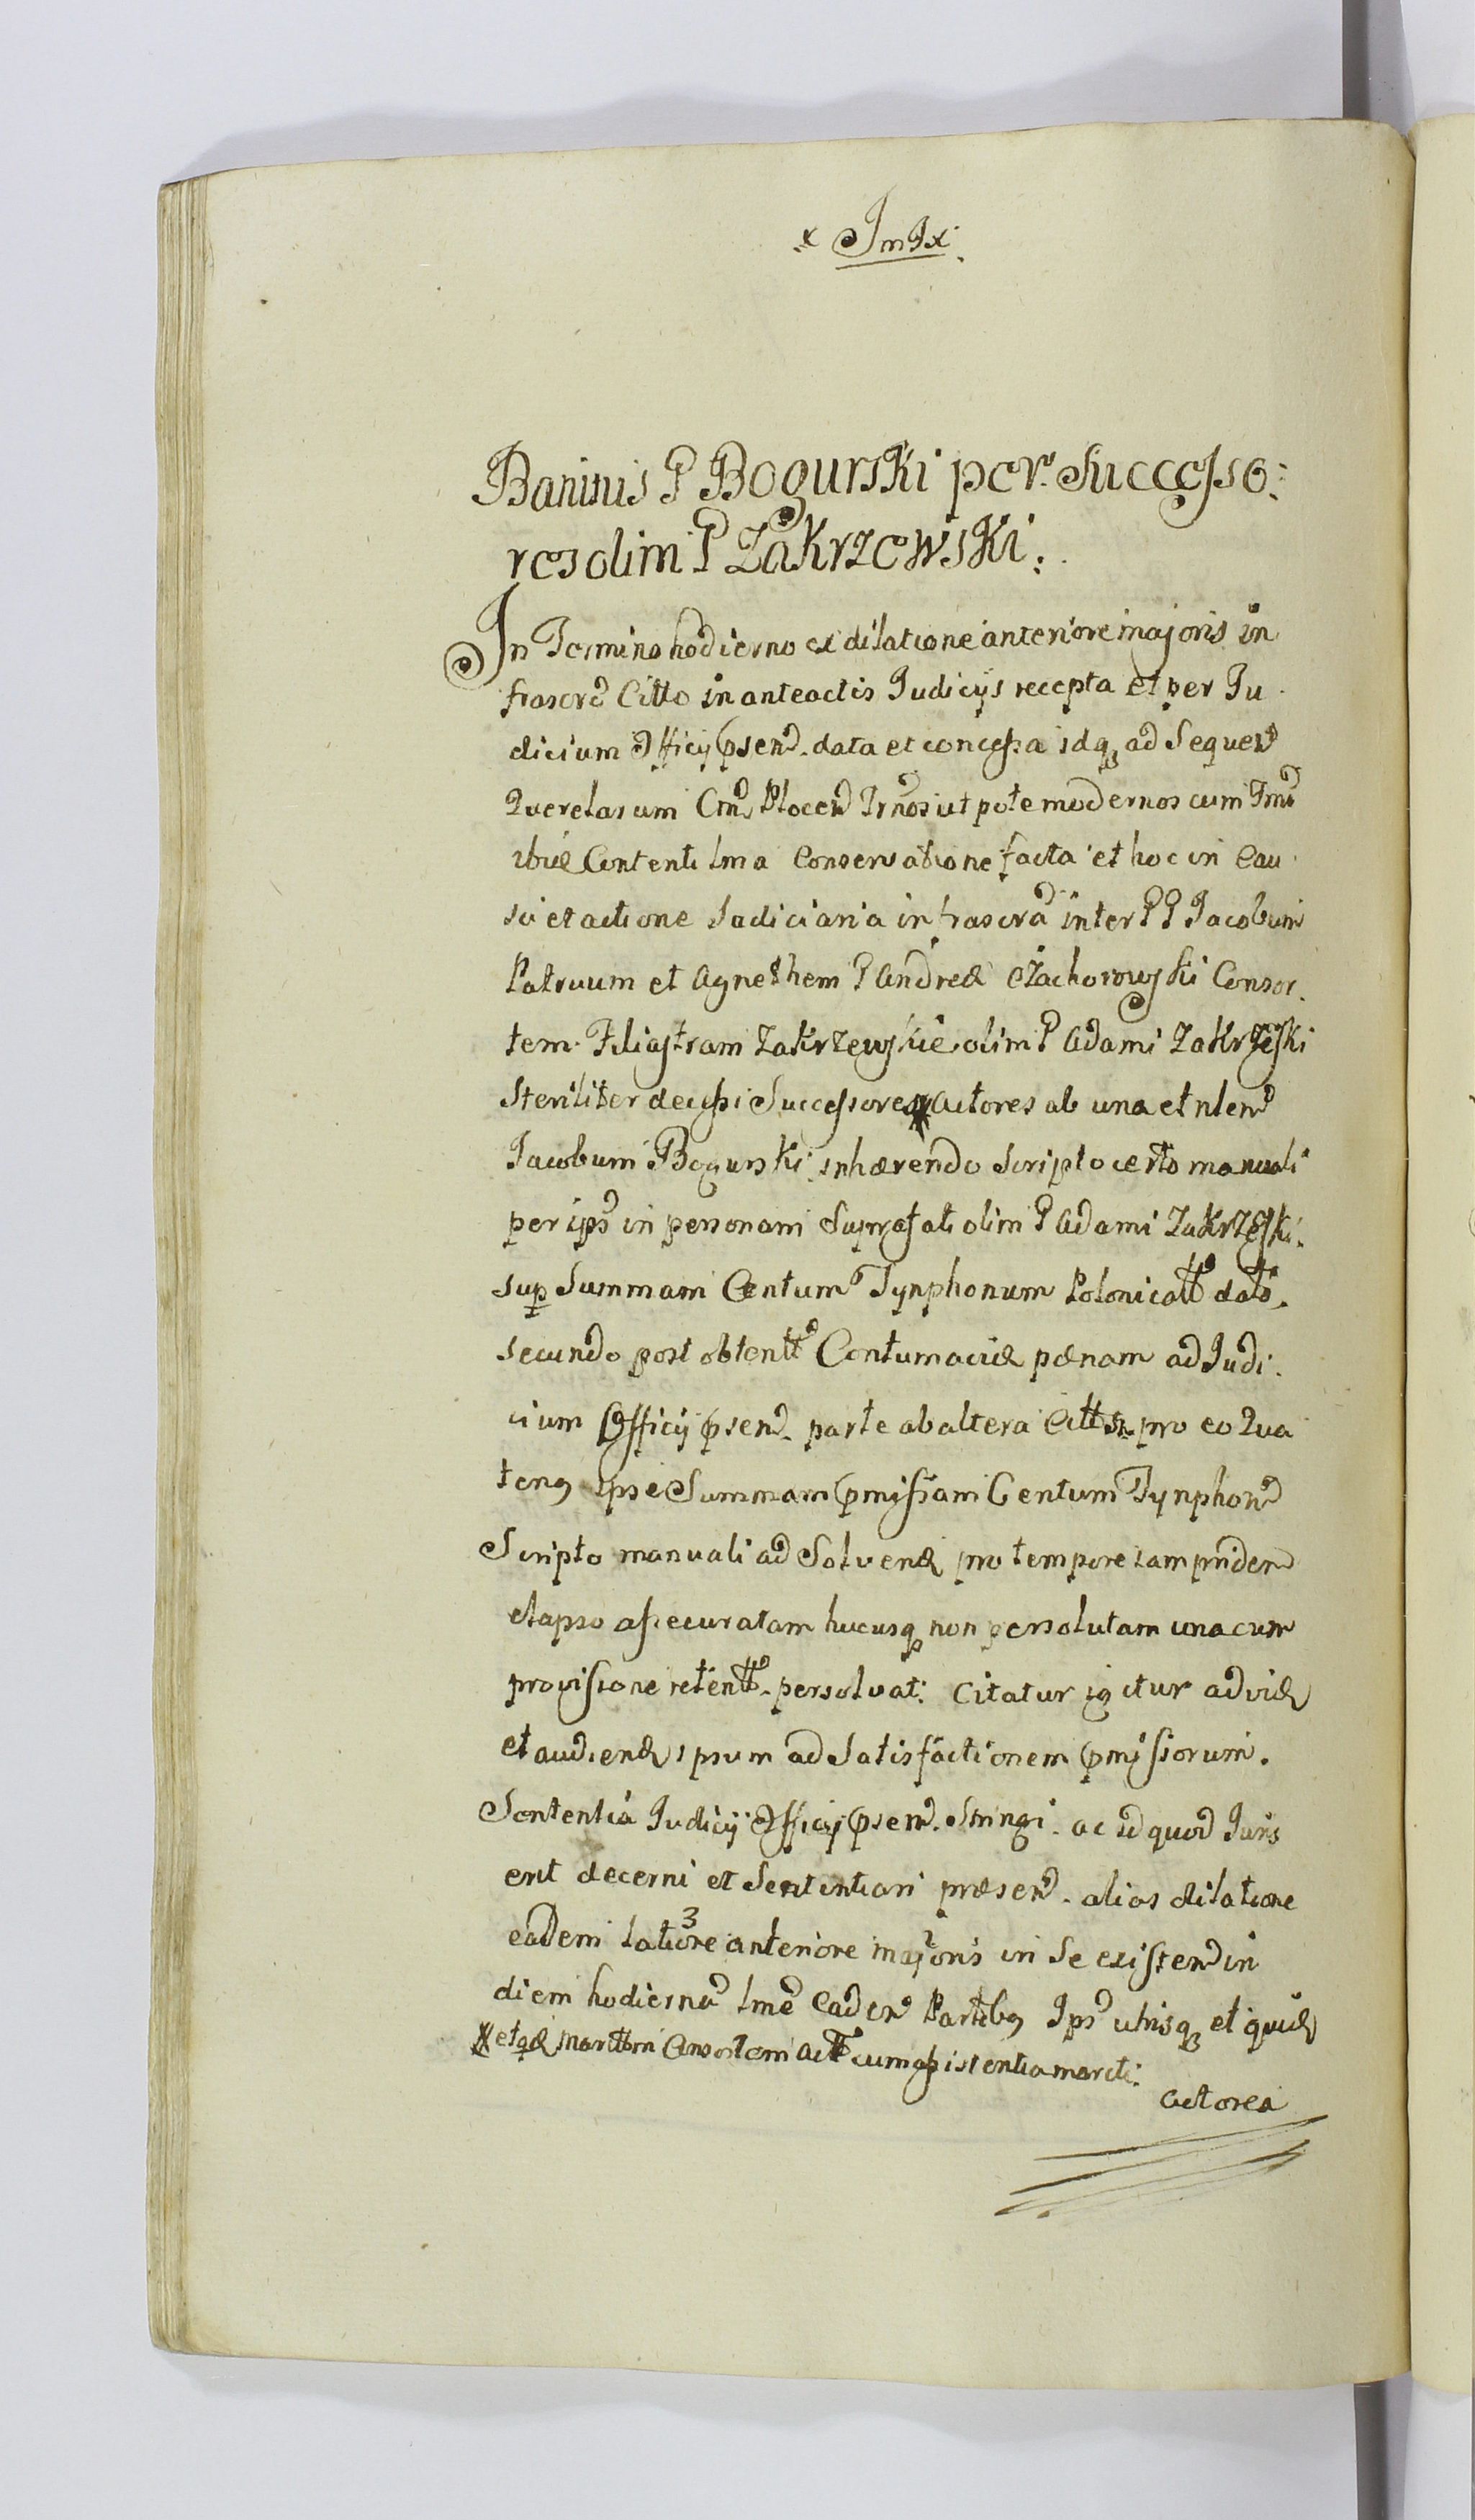 x JmJx.
Baninis P Bogurski per Successo:
res olim P Zakrzewski.
In Termino hodierno ex dilatione anteriore majoris in
frascrô Citto in anteactis Judicijs recepta et per Ju
dicium Officij psen. data et concessa idq ad Sequen
Querelarum Cm. Plocen Trnos utpote modernos cum
Content lma Conservatione facta et hoc in Cau
sa et actione Judiciaria infrascra inter PP Jacobum
Patruum et Agnethem P Andreæ Czachorowski Consor.
tem. Filiastram Zakrzewskie olim P Adami Zakrzeski
Steriliter decessi Successores Actores ab una et nlem
Jacobum Bogurski inhærendo Scripto certo manuali
per ips in personam Suprafati olim P Adami Zakrzeski.
sup Summam Centum Tynphonum Polonicatt dato.
secundo post obtentt Contumaciæ pænam ad Judi.
cium Officij psen. parte ab altera Citt pro eo Qua
tenq ipse Summam pmissam Centum Tynphon
Scripto manuali ad Solvend pro tempore iam priden
elapso assecuratam hucusq non persolutam una cum
provisione retentt. persolvat: Citatur igitur ad vid
et audiend ipsum ad Satisfactionem pmissorum.
Sententia Judicij Officij psen. Stringi. ac id quod Juris
erit decerni et Sententiari præsen. alias dilatione
eadem latiore anteriore majoris in Se existen in
diem hodierna lme Eaden Partibq Ips utrisq et quid
et qd Marttm Consortem Act cum assistentia mariti:
Actorea